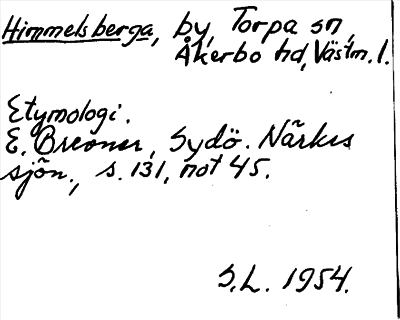 Himmelsberga, by, Torpa sn,
Åkerbo hd, Västm. l.
Etymologi.
E. Brenner, Sydö. Närkes
sjön., s. 131, not 45.
S.L. 1954.